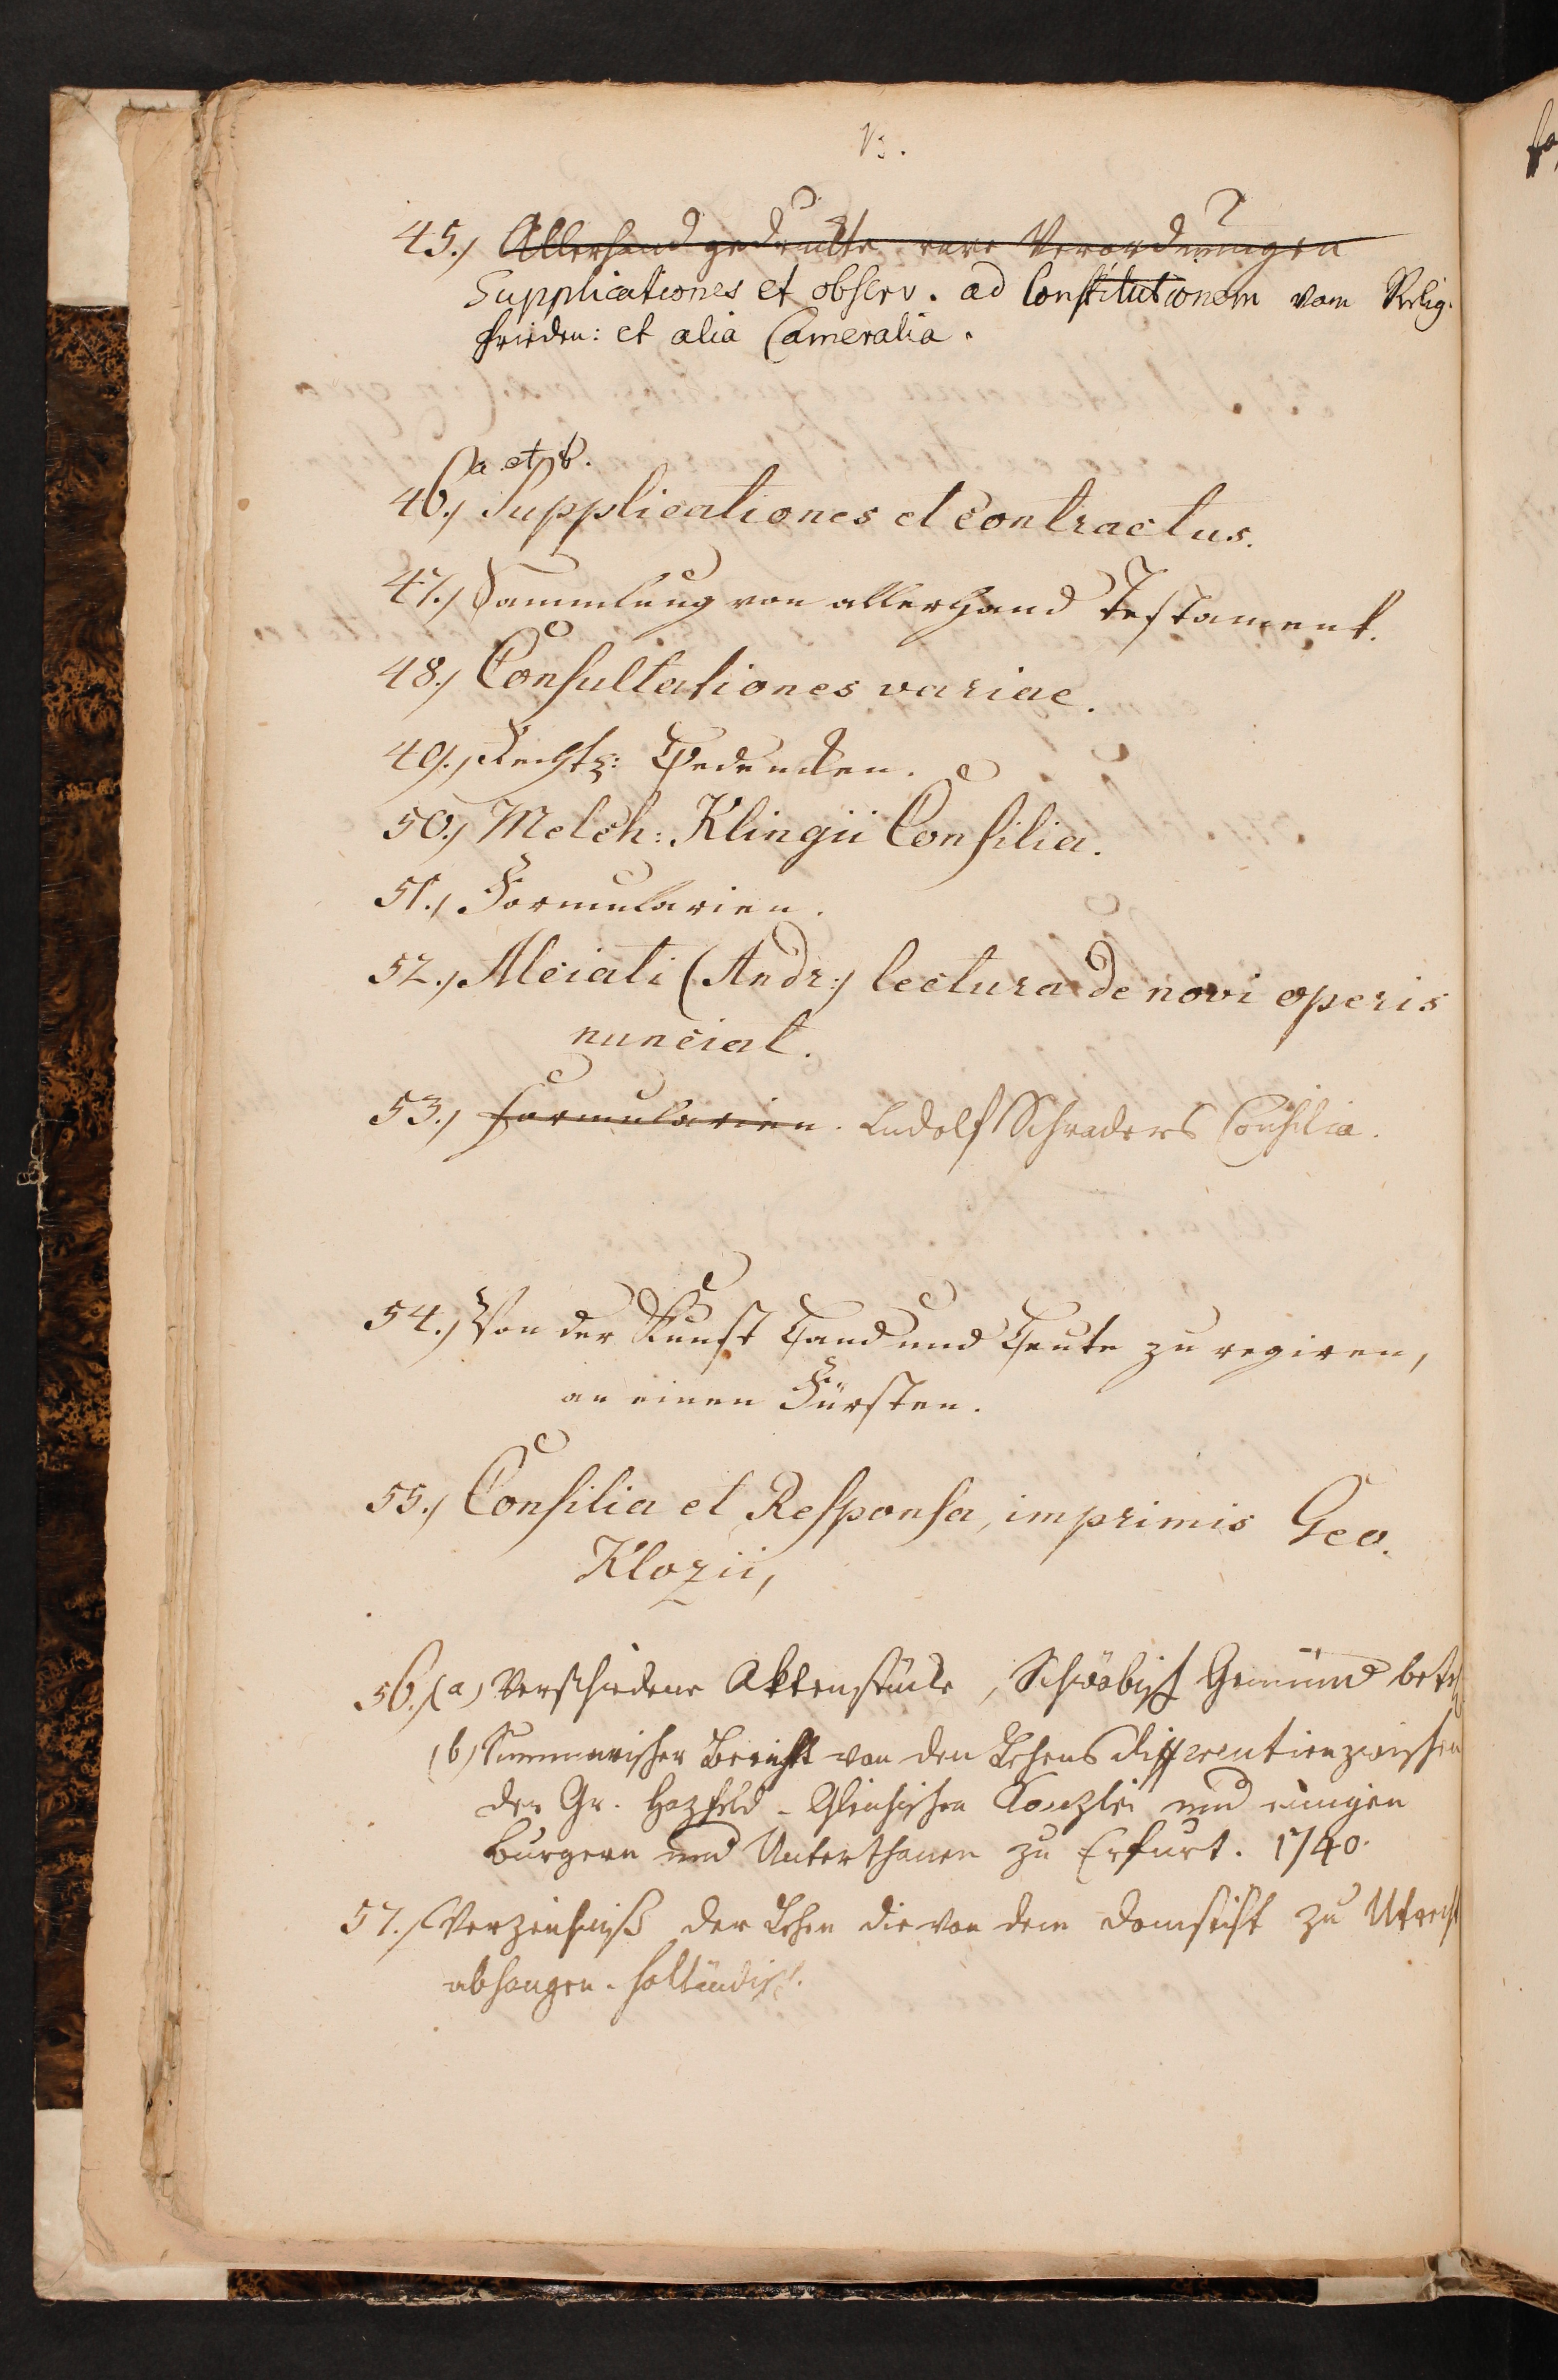 45.) Allerhand gedruckte rare Verordnungen
Supplicationes et observ. ad Constitutionem vom Relig.
frieden: et alia Cameralia.
a et b.
46.) Supplicationes et Contractus.
47.) Sammlung von allerhand Testament.
48.) Consultationes variae.
49.) Rechts: Bedencken.
50.) Melch: Klingii Consilia.
51.) Formularien.
52.) Alciati (Andr:) lectura de novi operis
nunciat.
53.) Formularien. Ludolf Schraders Consilia.
54.) Von der Kunst Land und Leute zu regiren,
an einen Fürsten.
55.) Consilia et Responsa, imprimis Geo.
Klozii,
56.) (a) Verschiedene Aktenstücke, Schwäbisch Gemünd betr
(b) Summarischer Bericht von den Lehens differentien zwischen
der Gr. Hazfeld-Gleichischen Kanzlei und einigen
Burgern und Unterthanen zu Erfurt. 1740.
57.) Verzeichniß der Lehen die von dem Domstift zu Utrecht
abhangen. holländisch.